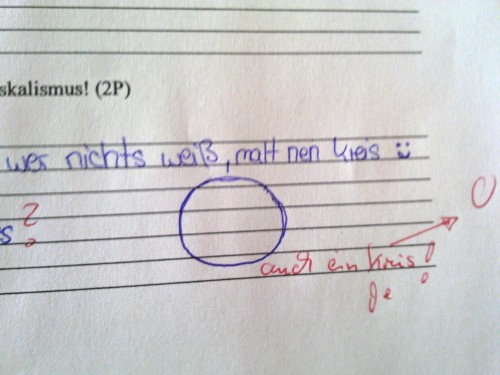 skalismus! (2P)
wer nichts weiß, malt nen kreis ü
s ?
auch ein kreis!
0